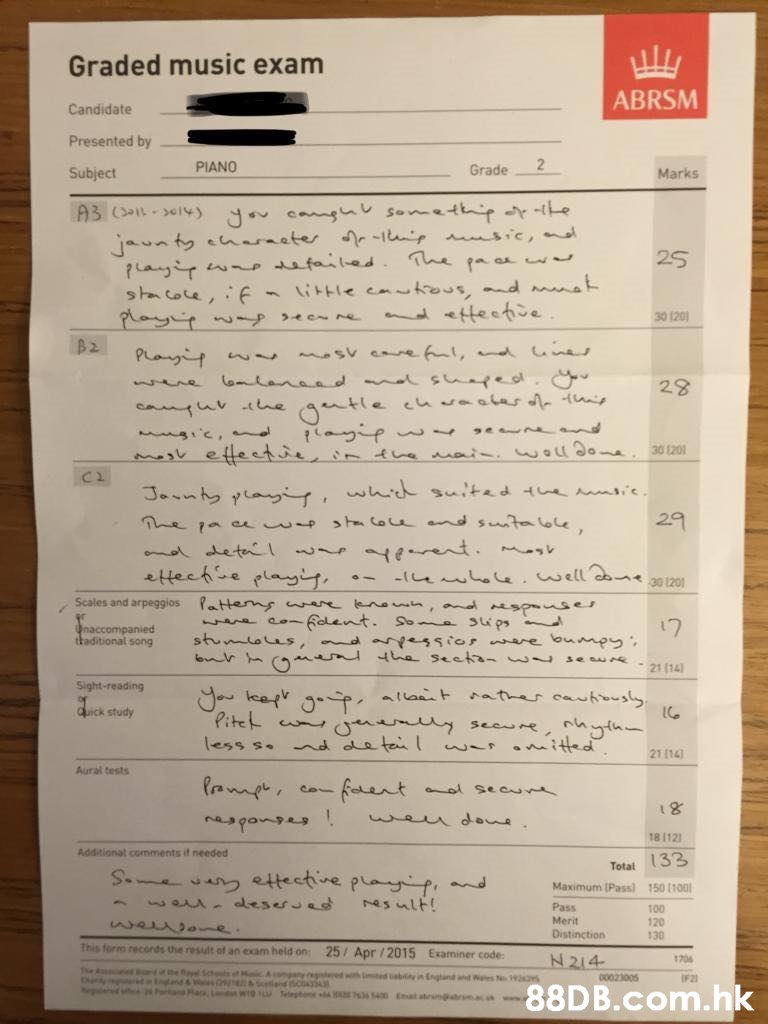 Graded music exam
ABRSM
Candidate
Presented by
Subject PIANO Grade 2 Marks
A3 (2013-2014) You caught something of the
jaunty character of this music, and
playing was detailed. The pace was 25
stable, if a little cautious, and most
playing was secure and effective. 30 (20)
B2 Playing was most careful, and lines
were balanced and shaped. You 28
caught the gentle character of this
music, and playing was secure and
most effective, in the main. Well done. 30 (20)
C2 Jaunty playing, which suited the music.
The pace was stable and suitable, 29
and detail was apparent. Most
effective playing, on the whole. Well done 30 (20)
Scales and arpeggios Patterns were known, and responses
or were confident. Some slips and 17
Unaccompanied
traditional song stumbles, and arpeggios were bumpy;
but in general the section was secure. 21 (14)
Sight-reading You kept going, albeit rather cautiously.
or
Quick study Pitch was generally secure, rhythm 16
less so and detail was omitted. 21 (14)
Aural tests Prompt, confident and secure
responses! Well done. 18
18 (12)
Additional comments if needed Total 133
Some very effective playing, and Maximum (Pass) 150 (100)
a well-deserved result! Pass 100
Well done. Merit 120
Distinction 130
This form records the result of an exam held on: 25 / Apr / 2015 Examiner code: N214 1706
The Associated Board of the Royal Schools of Music. A company registered with limited liability in England and Wales No. 00023005 (F2)
Charity registered in England & Wales & Scotland
Registered office: 24 Portland Place, London W1B 1LU Telephone Email abrsm@abrsm.ac.uk
88DB.com.hk